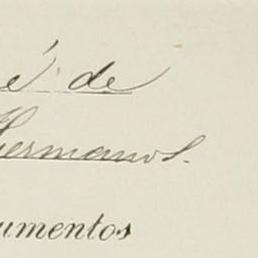 é de
Hermanos.
umentos